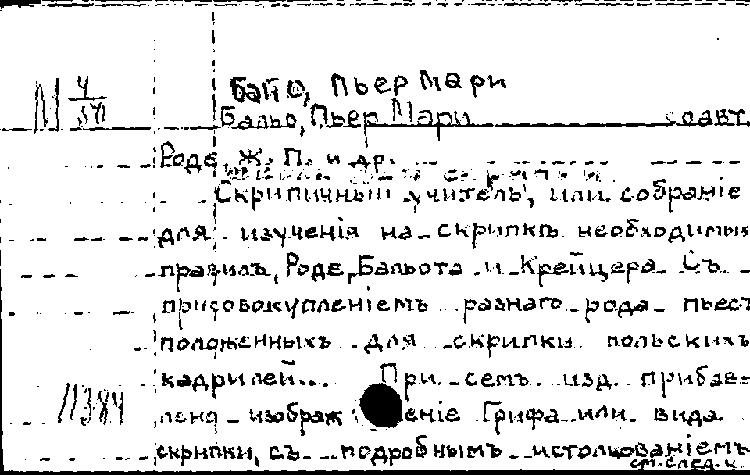 Байо, Пьер Мари
М 4/371
Бальо, Пьер Мари соавт.
Роде, Ж. П. и др.
скрипки
Скрипичный учитель, или собраніе
для изученія на скрипкѣ необходимыхъ
правилъ, Роде, Бальота и Крейцера. Съ
присовокупленіемъ разнаго рода пьесъ
положенныхъ для скрипки польскихъ
кадрилей... При семъ изд. прибав-
лено изображеніе Грифа или вида
11384
скрипки, съ подробнымъ истолкованіемъ
см. след. к.